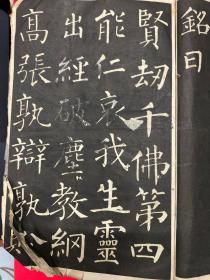 銘曰
賢劫千佛第四
能仁哀我生靈
出經破塵教網
高張孰辯孰